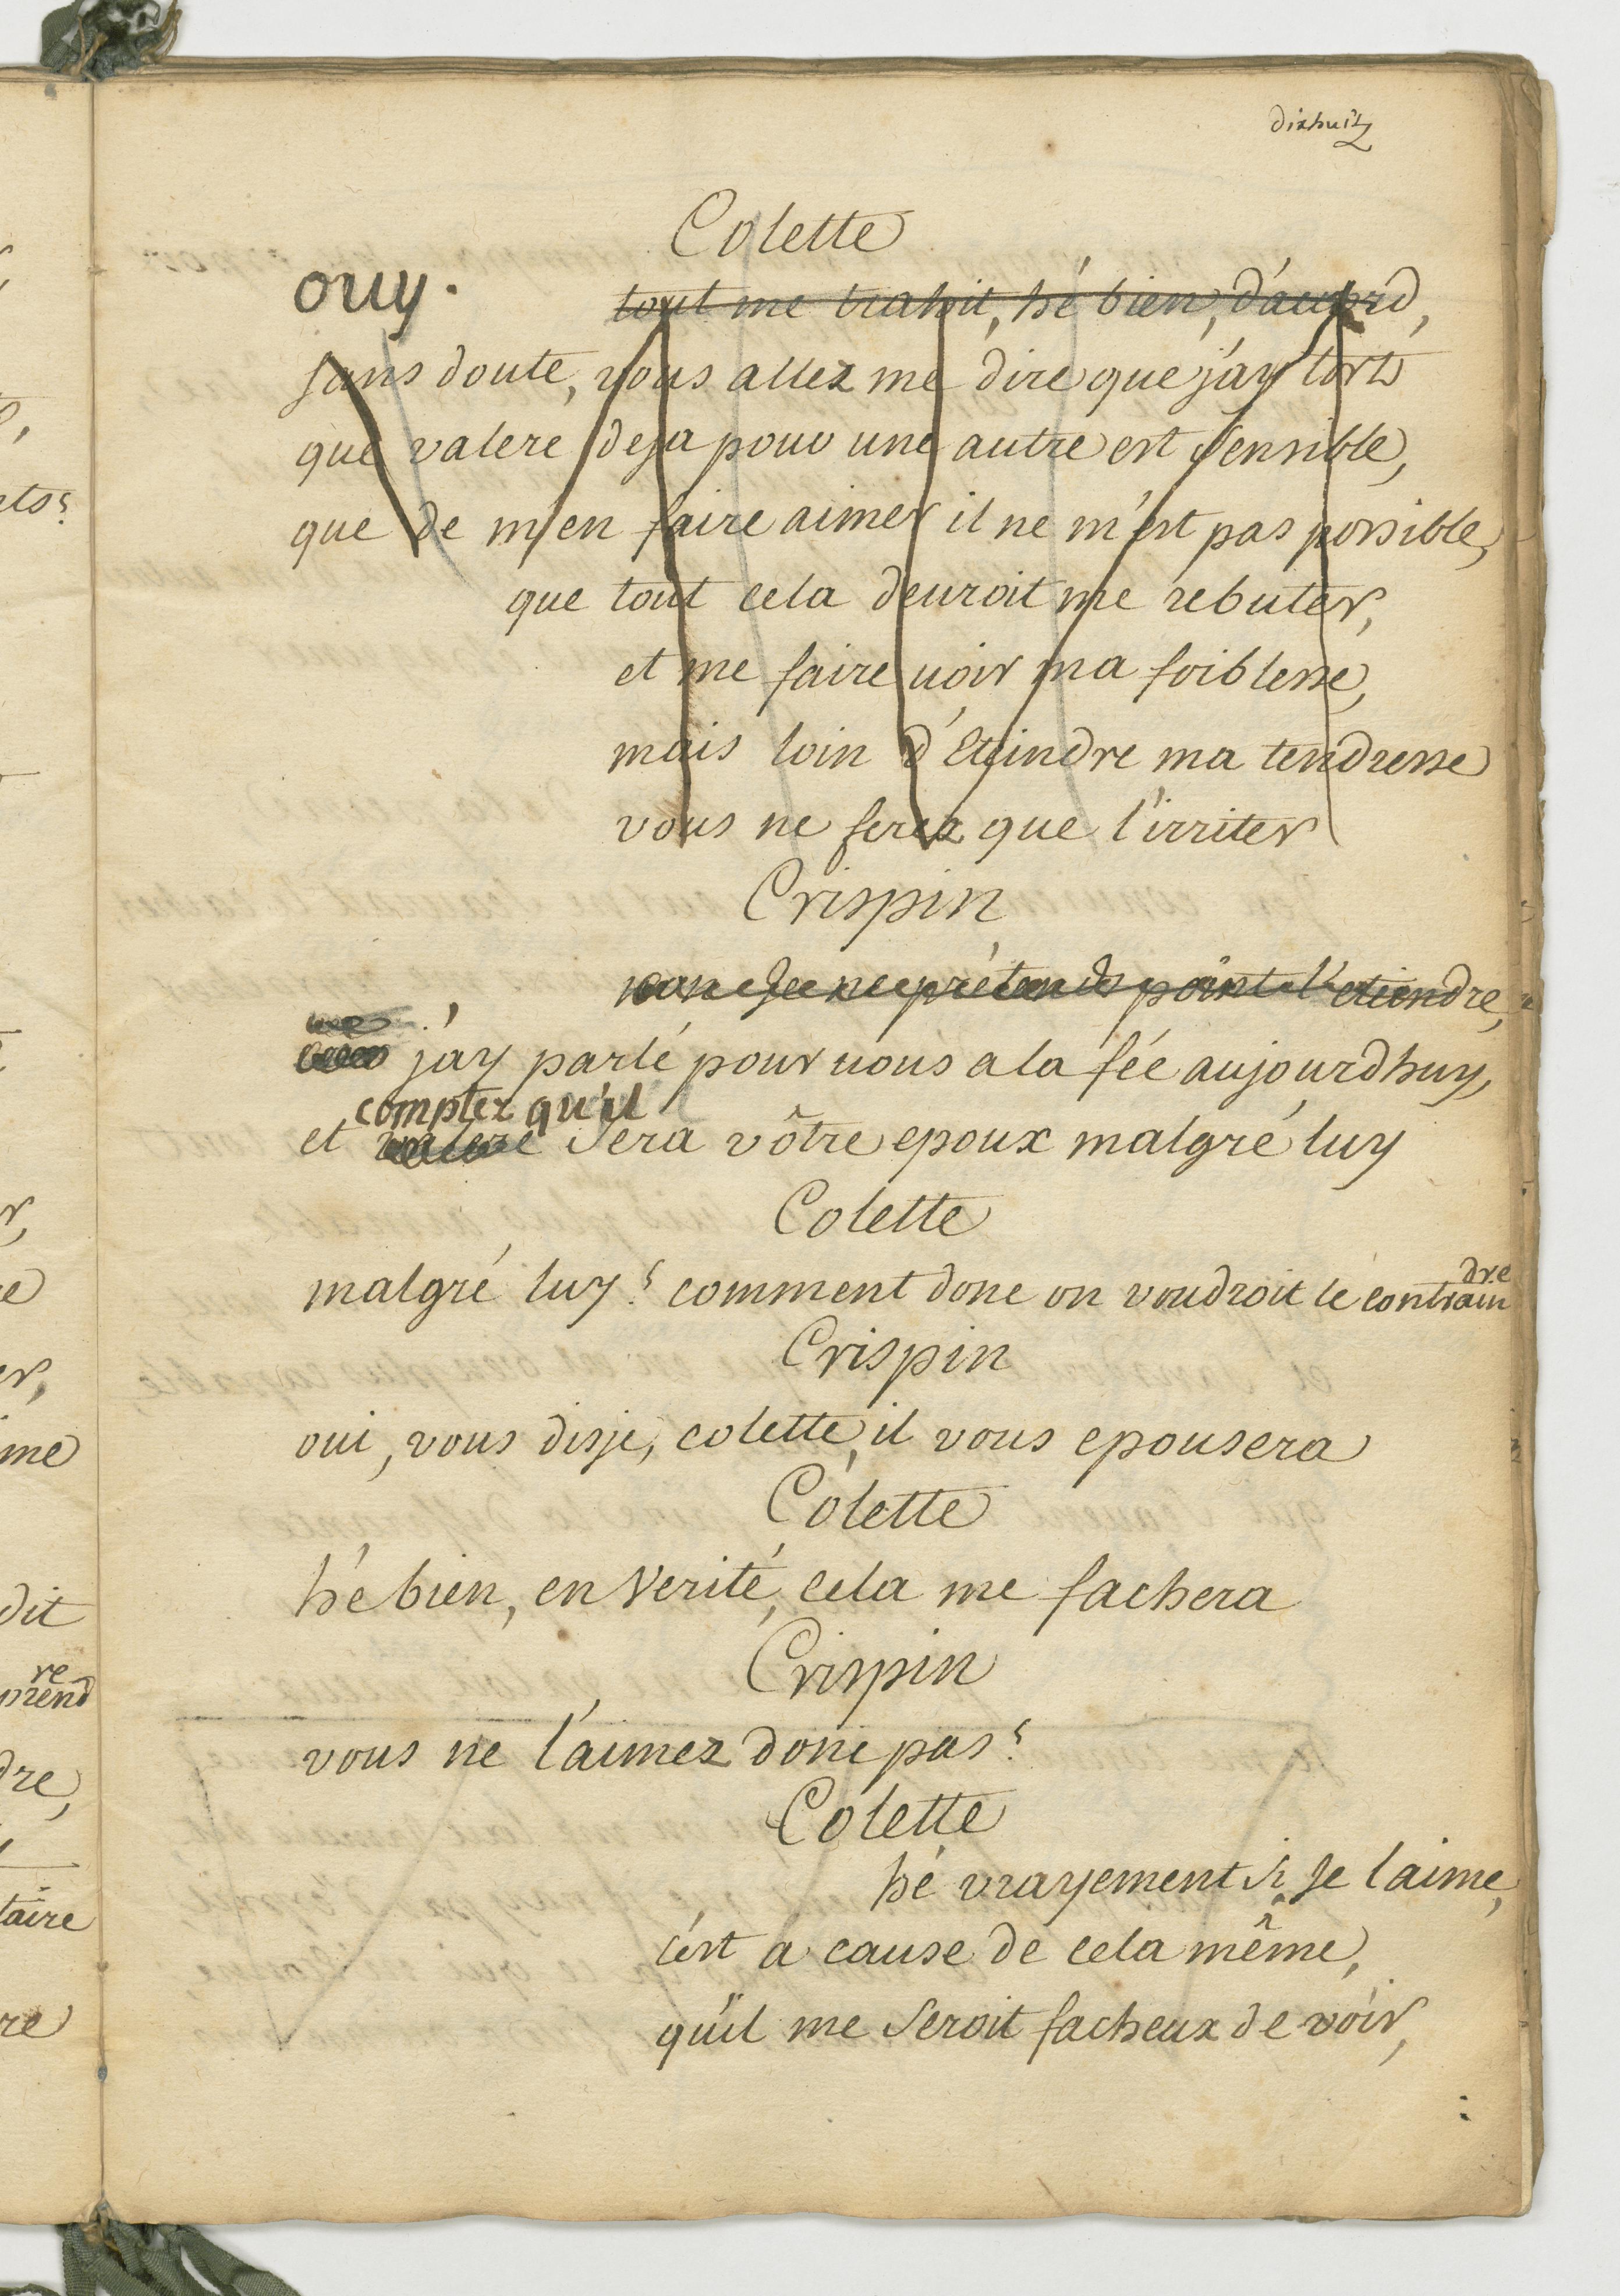 dixhuit
Colette
ouy.
tout me trahit, hé bien, d'accord,
sans doute, vous allez me dire que j'ay tort
que valere deja pour une autre est sensible,
que de m'en faire aimer il ne m'est pas possible,
que tout cela deuroit me rebuter,
et me faire uoir ma foiblesse,
mais loin d'éteindre ma tendresse
vous ne ferez que l'irriter
Crispin
non je ne prétends point l'eteindre,
j'ay parlé pour uous a la fée aujourdhuy,
comptez qu'il
et valere sera vôtre epoux malgré luy
Colette
malgré luy? comment donc on voudroit le contraindre
Crispin
oui, vous disje, colette, il vous epousera
Colette
hé bien, en verité, cela me fachera
Crispin
vous ne l'aimez donc pas?
Colette
hé vrayement si je l'aime,
c'est a cause de cela même,
qu'il me seroit facheux de voir,